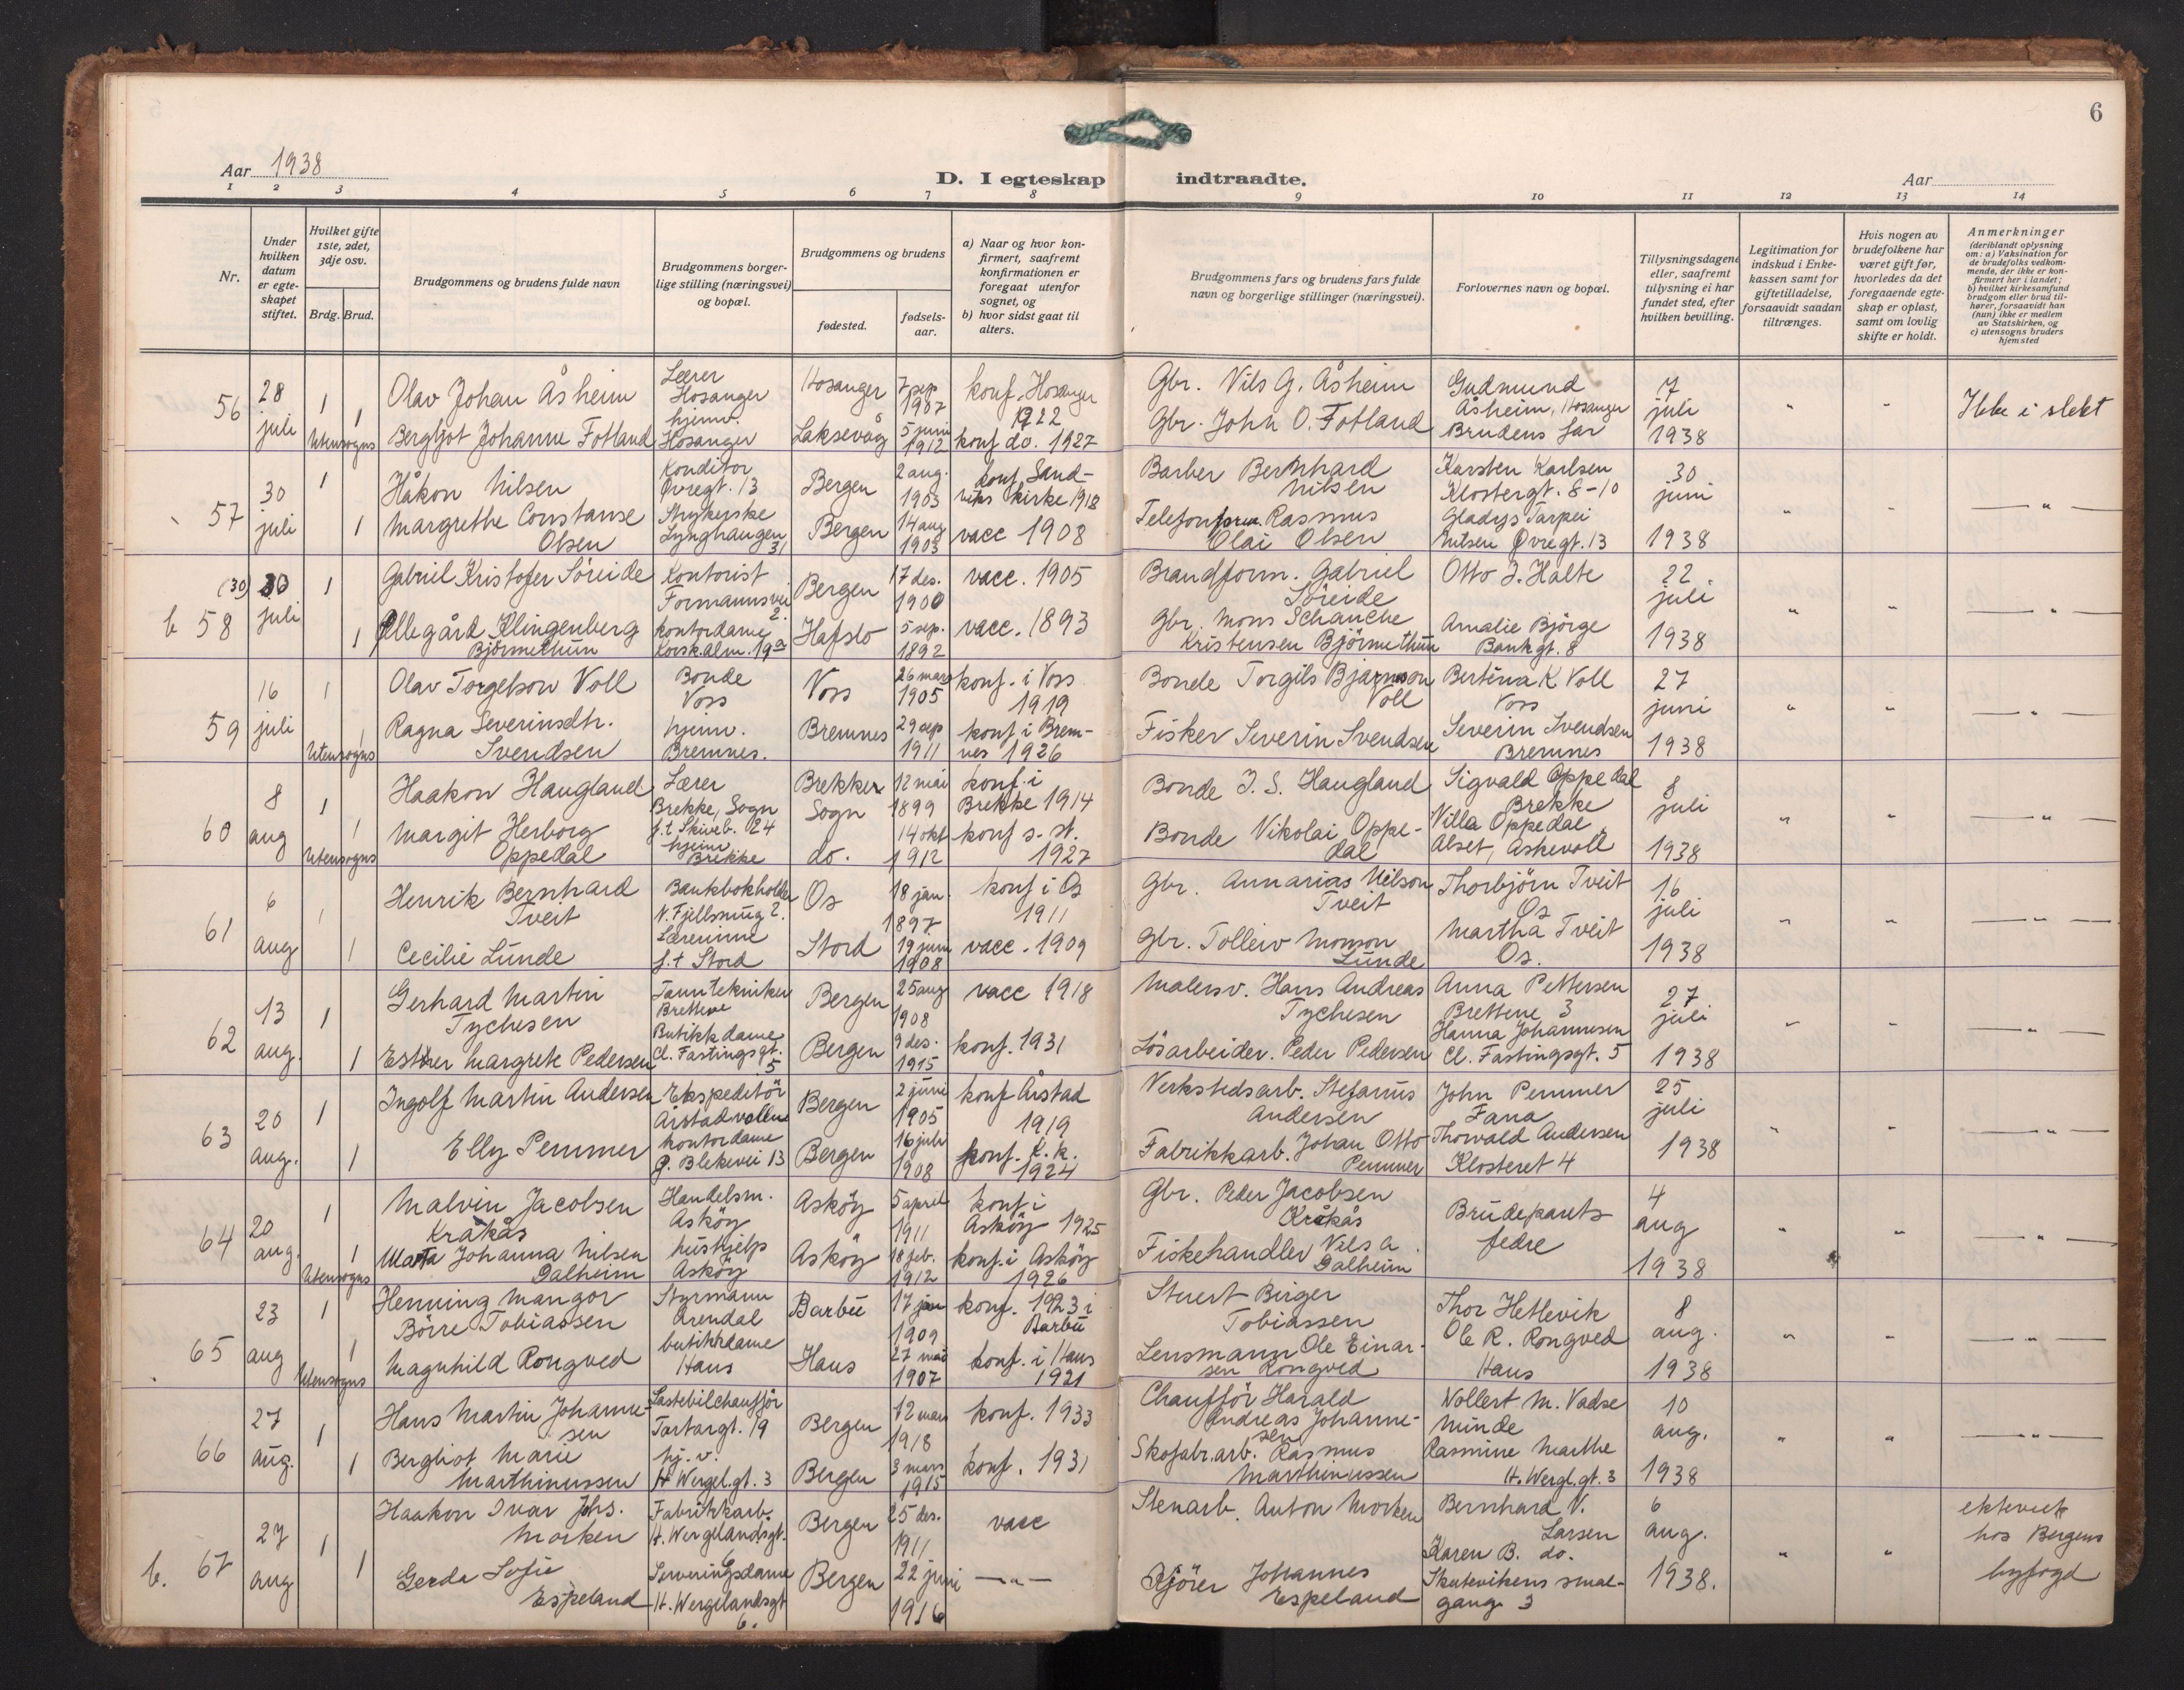 6
Aar 1938
D. I egteskap indtraadte.
Aar
1 2 3 4 5 6 7 8 9 10 11 12 13 14
Nr.
Under hvilken datum er egteskapet stiftet.
Hvilket gifte 1ste, 2det, 3dje osv.
Brdg. Brud.
Brudgommens og brudens fulde navn
Brudgommens borgerlige stilling (næringsvei) og bopæl.
Brudgommens og brudens
fødested.
fødselsaar.
a) Naar og hvor konfirmert, saafremt konfirmationen er foregaat utenfor sognet, og
b) hvor sidst gaat til alters.
Brudgommens fars og brudens fars fulde navn og borgerlige stillinger (næringsvei).
Forlovernes navn og bopæl.
Tillysningsdagene eller, saafremt tillysning ei har fundet sted, efter hvilken bevilling.
Legitimation for indskud i Enkekassen samt for giftetilladelse, forsaavidt saadan tiltrænges.
Hvis nogen av brudefolkene har været gift før, hvorledes da det foregaaende egteskap er opløst, samt om lovlig skifte er holdt.
Anmerkninger
(deriblandt oplysning om: a) Vaksination for de brudefolks vedkommende, der ikke er konfirmert her i landet; b) hvilket kirkesamfund brudgom eller brud tilhører, forsaavidt han (hun) ikke er medlem av Statskirken, og c) utensogns bruders hjemsted
56 28 juli 1 Olav Johan Åsheim Lærer Hosanger Hosanger 7 sep 1907 konf. Hosanger 1922 Gbr. Nils G. Åsheim Gudmund Åsheim, Hosanger 7 juli 1938 " " Ikke i slekt
1 Utensogns Bergljot Johanne Fotland hjemv. Hosanger Laksevåg 5 juni 1912 konf do. 1927 Gbr. John O. Fotland Brudens far
57 30 juli 1 Håkon Nilsen Konditor Øvregt. 13 Bergen 2 aug. 1903 konf. Sandviks kirke 1918 Barber Bernhard Nilsen Karsten Karlsen Klostergt. 8-10 30 juni 1938 " " — " —
1 Margrethe Constanse Olsen Strykerske Lynghaugen 31 Bergen 14 aug 1903 vacc 1908 Telefonform. Rasmus Olai Olsen Gladys Tarpei Nilsen Øvregt. 13
b 58 (30) 30 juli 1 Gabriel Kristofer Søreide Kontorist Formannsvei 2. Bergen 17 des. 1900 vacc. 1905 Brandform. Gabriel Søreide Otto J. Halte 22 juli 1938 " " — " —
1 Ollegård Klingenberg Bjørmethun kontordame Korsk.alm. 19a Hafslo 5 sep. 1892 vacc. 1893 Gbr. Mons Schanche Kristensen Bjørmethun Amalie Bjørge Bankgt. 8
59 16 juli 1 Olav Torgelson Voll Bonde Voss Voss 26 mars 1905 konf. i Voss 1919 Bonde Torgils Bjarneson Voll Bertina K Voll Voss 27 juni 1938 " " — " —
1 Utensogns Ragna Severinsdtr. Svendsen hjemv. Bremnes. Bremnes 29 sep 1911 konf i Bremnes 1926 Fisker Severin Svendsen Severin Svendsen Bremnes
60 8 aug 1 Haakon Haugland Lærer Brekke, Sogn f.t Skiveb. 24 Brekke Sogn 12 mai 1899 konf. i Brekke 1914 Bonde J. S. Haugland Sigvald Oppedal Brekke 8 juli 1938 " " — " —
1 Utensogns Margit Herborg Oppedal hjemv Brekke do. 14 okt 1912 konf s. st. 1927 Bonde Nikolai Oppedal Villa Oppedal, Alset, Askevoll
61 6 aug 1 Henrik Bernhard Tveit Bankbokholder N. Fjellsmug 2. Os 18 jan. 1897 konf i Os 1911 Gbr. Annanias Nilson Tveit Thorbjørn Tveit Os 16 juli 1938 " " — " —
1 Cecilie Lunde Lærerinne f.t Stord Stord 19 juni 1908 vacc. 1909 Gbr. Tolleiv Monson Lunde Martha Tveit Os.
62 13 aug. 1 Gerhard Martin Tychesen Tanntekniker Bretteve Bergen 25 aug 1908 vacc 1918 Malersv. Hans Andreas Tychesen Anna Pettersen Bretteve 3 27 juli 1938 " " — " —
1 Esther Margrete Pedersen Butikkdame Cl. Fastingsgt. 5 Bergen 9 des. 1915 konf. 1931 Løsarbeider. Peder Pedersen Hanna Johannesen Cl. Fastingsgt. 5
63 20 aug. 1 Ingolf Martin Andersen Ekspeditør Årstadvollen Bergen 2 juni 1905 konf Årstad 1919 Verkstedsarb. Stefanus Andersen John Pemmer Fana 25 juli 1938 " " — " —
1 Elly Pemmer kontordame G. Blekevei 13 Bergen 16 juli 1908 konf. K. k. 1924 Fabrikkarb. Johan Otto Pemmer Thorvald Andersen Klosteret 4
64 20 aug. 1 Malvin Jacobsen Kråkås Handelsm. Askøy Askøy 5 april 1911 konf. i Askøy 1925 Gbr. Peder Jacobsen Kråkås Brudeparets fedre 4 aug 1938 " " — " —
1 Utensogns Marta Johanna Nilsen Dalheim hushjelp Askøy Askøy 18 feb. 1912 konf. i Askøy 1926 Fiskehandler Nils A. Dalheim
65 23 aug 1 Henning Mangor Børre Tobiassen Styrmann Arendal Barbu 17 jan 1909 konf. 1923 i Barbu Stuert Birger Tobiassen Thor Hetlevik 8 aug. 1938 " " — " —
1 Utensogns Magnhild Rongved butikkdame Haus Haus 27 mai 1907 konf. i Haus 1921 Lensmann Ole Einarsen Rongved Ole R. Rongved Haus
66 27 aug. 1 Hans Martin Johannesen Lastebilchauffør Tartargt. 19 Bergen 12 mars 1918 konf. 1933 Chauffør Harald Andreas Johannesen Vollert M. Vadse Minde 10 aug. 1938 " " — " —
1 Bergliot Marie Marthinussen hj. v. H. Wergel.gt. 3 Bergen 3 mars 1915 konf. 1931 Skofabr.arb. Rasmus Marthinussen Rasmine Marthe H. Wergl.gt. 3
b. 67 27 aug 1 Haakon Ivar Johs. Morken Fabrikkarb. H. Wergelandsgt. 6 Bergen 25 des. 1911 vacc Stenarb. Anton Morken Bernhard V. Larsen 6 aug. 1938. " " ekteviet hos Bergens byfogd
1 Gerda Sofie Espeland Serveringsdame H. Wergelandsgt 6. Bergen 22 juni 1916 — " — Kjører Johannes Espeland Karen B. do. Skutevikens smalgang 3